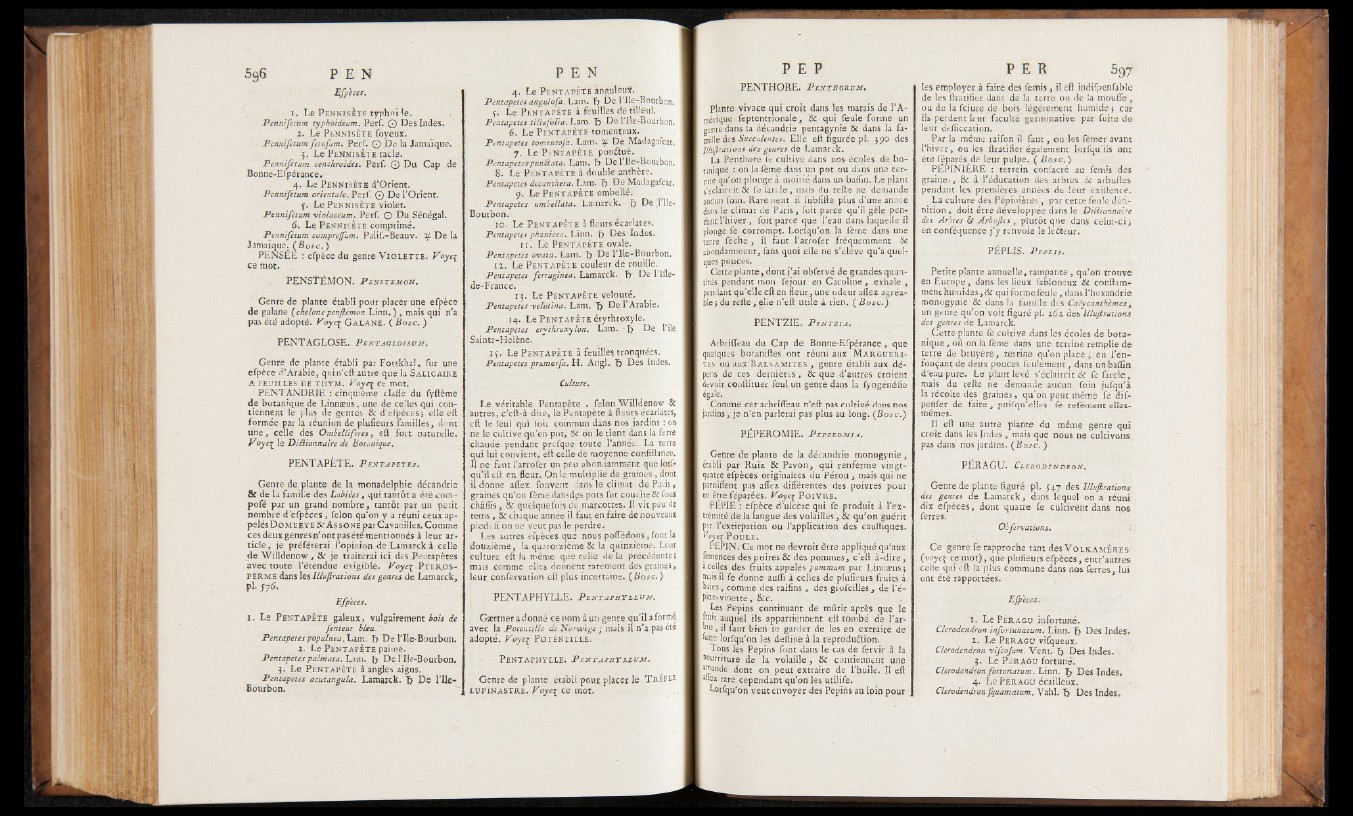 596 P E N
Eſpèces.
1. Le PENNISÈTE typhoïde.
Penniſetum typhoideum. Perſ. ☉ Des Indes.
2. Le PENNISÈTE ſoyeux.
Penniſetum ſetoſum. Perſ. ☉ De la Jamaïque.
3. Le PENNISÈTE racle.
Penniſetum cenchroides. Perſ. ☉ Du Cap de
Bonne-Eſpérance.
4. Le PENNISÈTE d'Orient.
Penniſetum orientale. Perſ. ☉ De l'Orient.
5. Le PENNISÈTE violet.
Penniſetum violaceum. Perſ. ☉ Du Sénégal.
6. Le PENNISÈTE comprimé.
Penniſetum compreſſum. Paliſ.-Beauv. ♃ De la
Jamaïque. (Bosc.)
PENSÉE : eſpèce du genre VIOLETTE. Voyez
ce mot.
PENSTÉMON. PENSTEMON.
Genre de plante établi pour placer une eſpèce
de galane (chelone penſtemon Linn.), mais qui n'a
pas été adopté. Voyez GALANE. (Bosc.)
PENTAGLOSE. PENTAGLOSSUM.
Genre de plante établi par Forskhal, ſur une
eſpèce d'Arabie, qui n'eſt autre que la SALICAIRE
A FEUILLES DE THYM. Voyez ce mot.
PENTANDRIE : cinquième claſſe du ſyſtème
de botanique de Linnæus, une de celles qui con-
tiennent le plus de genres & d'eſpèces; elle eſt
formée par la réunion de pluſieurs familles, dont
une, celle des Ombellifères, eſt fort naturelle.
Voyez le Dictionnaire de Botanique.
PENTAPÈTE. PENTAPETES.
Genre de plante de la monadelphie décandrie
& de la famille des Labiées, qui tantôt a été com-
poſé par un grand nombre, tantôt par un petit
nombre d'eſpèces, ſelon qu'on y a réuni ceux ap-
pelés DOMBEYE & ASSONE par Cavanilles. Comme
ces deux genres n'ont pas été mentionnés à leur ar-
ticle, je préférerai l'opinion de Lamarck à celle
de Willdenow, & je traiterai ici des Pentapètes
avec toute l'étendue exigible. Voyez PTEROS-
PERME dans les Illuſtrations des genres de Lamarck,
pl. 576.
Eſpèces.
1. Le PENTAPÈTE galeux, vulgairement bois de
ſenteur bleu.
Pentapetes populnea. Lam. ♄ De l'Ile-Bourbon.
2. Le PENTAPÈTE palmé.
Pentapetes palmata. Lam. ♄ De l'Ile-Bourbon.
3. Le PENTAPÈTE à angles aigus.
Pentapetes acutangula. Lamarck. ♄ De l'Ile-
Bourbon.
P E N
4. Le PENTAPÈTE anguleux.
Pentapetes anguloſa. Lam. ♄ De l'Ile-Bourbon.
5. Le PENTAPÈTE à feuilles de tilleul.
Pentapetes tiliæfolia. Lam. ♄ De l'Ile-Bourbon.
6. Le PENTAPÈTE tomenteux.
Pentapetes tomentoſa. Lam. ♃ De Madagaſcar.
7. Le PENTAPÈTE ponctué.
Pentapetes punctata. Lam. ♄ De l'Ile-Bourbon.
8. Le PENTAPÈTE à double anthère.
Pentapetes decanthera. Lam. ♄ De Madagaſcar.
9. Le PENTAPÈTE ombellé.
Pentapetes umbellata. Lamarck. ♄ De l'Ile-
Bourbon.
10. Le PENTAPÈTE à fleurs écarlates.
Pentapetes phœnicea. Linn. ♄ Des Indes.
11. Le PENTAPÈTE ovale.
Pentapetes ovata. Lam. ♄ De l'Ile-Bourbon.
12. Le PENTAPÈTE couleur de rouille.
Pentapetes ferruginea. Lamarck. ♄ De l'Iſle-
de-France.
13. Le PENTAPÈTE velouté.
Pentapetes velutina. Lam. ♄ De l'Arabie.
14. Le PENTAPÈTE érythroxyle.
Pentapetes erythroxylon. Lam. ♄ De l'île
Sainte-Hélène.
15. Le PENTAPÈTE à feuilles tronquées.
Pentapetes præmorſa. H. Angl. ♄ Des Indes.
Culture.
Le véritable Pentapète, ſelon Willdenow &
autres, c'eſt-à-dire, le Pentapète à fleurs écarlates,
eſt le ſeul qui ſoit commun dans nos jardins : on
ne le cultive qu'en pot, & on le tient dans la ſerre
chaude pendant preſque toute l'année. La terre
qui lui convient, eſt celle de moyenne conſiſtance.
Il ne faut l'arroſer un peu abondamment que lorſ-
qu'il eſt en fleur. On le multiplie de graines, dont
il donne aſſez ſouvent dans le climat de Paris,
graines qu'on ſème dans des pots ſur couche & ſous
châſſis, & quelquefois de marcottes. Il vit peu de
tems, & chaque année il faut en faire de nouveaux
pieds ſi on ne veut pas le perdre.
Les autres eſpèces que nous poſſédons, ſont la
douzième, la quatorzième & la quinzième. Leur
culture eſt la même que celle de la précédente;
mais comme elles donnent rarement des graines,
leur conſervation eſt plus incertaine. (Bosc.)
PENTAPHYLLE. PENTAPHYLLUM.
Gærtner a donné ce nom à un genre qu'il a formé
avec la Potentille de Norwège; mais il n'a pas été
adopté. Voyez POTENTILLE.
PENTAPHYLLE. PENTAPHYLLUM.
Genre de plante établi pour placer le TRÈFLE
LUPINASTRE. Voyez ce mot.
P E P
PENTHORE. PENTHORUM.
Plante vivace qui croît dans les marais de l'A-
mérique ſeptentrionale, & qui ſeule forme un
genre dans la décandrie pentagynie & dans la fa-
mille des Succulentes. Elle eſt figurée pl. 390 des
Illuſtrations des genres de Lamarck.
La Penthore ſe cultive dans nos écoles de bo-
tanique : on la ſème dans un pot ou dans une ter-
rine qu'on plonge à moitié dans un baſſin. Le plant
s'éclaircit & ſe ſarcle, mais du reſte ne demande
aucun ſoin. Rarement il ſubſiſte plus d'une année
dans le climat de Paris, ſoit parce qu'il gèle pen-
dant l'hiver, ſoit parce que l'eau dans laquelle il
plonge ſe corrompt. Lorſqu'on la ſème dans une
terre ſèche, il faut l'arroſer fréquemment &
abondamment, ſans quoi elle ne s'élève qu'à quel-
ques pouces.
Cette plante, dont j'ai obſervé de grandes quan-
tités pendant mon ſéjour en Caroline, exhale,
pendant qu'elle eſt en fleur, une odeur aſſez agréa-
ble; du reſte, elle n'eſt utile à rien. (Bosc.)
PENTZIE. PENTZIA.
Arbriſſeau du Cap de Bonne-Eſpérance, que
quelques botaniſtes ont réuni aux MARGUERI-
TES ou aux BALSAMITES, genre établi aux dé-
pens de ces dernières, & que d'autres croient
devoir conſtituer ſeul un genre dans la ſyngénéſie
égale.
Comme cet arbriſſeau n'eſt pas cultivé dans nos
jardins, je n'en parlerai pas plus au long. (Bosc.)
PÉPEROMIE. PEPEROMIA.
Genre de plante de la décandrie monogynie,
établi par Ruiz & Pavon, qui renferme vingt-
quatre eſpèces originaires du Pérou, mais qui ne
paroiſſent pas aſſez différentes des poivres pour
en être ſéparées. Voyez POIVRE.
PÉPIE : eſpèce d'ulcère qui ſe produit à l'ex-
trémité de la langue des volailles, & qu'on guérit
par l'extirpation ou l'application des cauſtiques.
Voyez POULE.
PEPIN. Ce mot ne devroit être appliqué qu'aux
ſemences des poires & des pommes, c'eſt-à-dire,
à celles des fruits appelés pommum par Linnæus;
mais il ſe donne auſſi à celles de pluſieurs fruits à
baies, comme des raiſins, des groſeilles, de l'é-
pine-vinette, &c.
Les Pepins continuant de mûrir après que le
fruit auquel ils appartiennent eſt tombé de l'ar-
bre, il faut bien ſe garder de les en extraire de
ſuite lorſqu'on les deſtine à la reproduction.
Tous les Pepins ſont dans le cas de ſervir à la
nourriture de la volaille, & contiennent une
amande dont on peut extraire de l'huile. Il eſt
aſſez rare cependant qu'on les utiliſe.
Lorſqu'on veut envoyer des Pepins au loin pour
P E R 597
les employer à faire des ſemis, il eſt indiſpenſable
de les ſtratifier dans de la terre ou de la mouſſe,
ou de la ſciure de bois légèrement humide; car
ils perdent leur faculté germinative par ſuite de
leur deſſiccation.
Par la même raiſon il faut, ou les ſemer avant
l'hiver, ou les ſtratifier également lorſqu'ils ont
été ſéparés de leur pulpe. (Bosc.)
PEPINIÈRE : terrein conſacré au ſemis des
graines, & à l'éducation des arbres & arbuſtes
pendant les premières années de leur exiſtence.
La culture des Pépinières, par cette ſeule défi-
nition, doit être développée dans le Dictionnaire
des Arbres & Arbuſtes, plutôt que dans celui-ci;
en conſéquence j'y renvoie le lecteur.
PÉPLIS. PEPLIS.
Petite plante annuelle, rampante, qu'on trouve
en Europe, dans les lieux ſabloneux & conſtam-
ment humides, & qui forme ſeule, dans l'hexandrie
monogynie & dans la famille des Calycanthèmes,
un genre qu'on voit figuré pl. 262 des Illuſtrations
des genres de Lamarck.
Cette plante ſe cultive dans les écoles de bota-
nique, où on la ſème dans une terrine remplie de
terre de bruyère, terrine qu'on place, en l'en-
fonçant de deux pouces ſeulement, dans un baſſin
d'eau pure. Le plant levé s'éclaircit & ſe ſarcle,
mais du reſte ne demande aucun ſoin juſqu'à
la récolte des graines, qu'on peut même ſe diſ-
penſer de faire, puiſqu'elles ſe reſèment elles-
mêmes.
Il eſt une autre plante du même genre qui
croît dans les Indes, mais que nous ne cultivons
pas dans nos jardins. (Bosc.)
PÉRAGU. CLERODENDRON.
Genre de plante figuré pl. 547 des Illuſtrations
des genres de Lamarck, dans lequel on a réuni
dix eſpèces, dont quatre ſe cultivent dans nos
ſerres.
Obſervations.
Ce genre ſe rapproche tant des VOLKAMÈRES
(voyez ce mot), que pluſieurs eſpèces, entr'autres
celle qui eſt la plus commune dans nos ſerres, lui
ont été rapportées.
Eſpèces.
1. Le PÉRAGU infortuné.
Clerodendron infortunatum. Linn. ♄ Des Indes.
2. Le PÉRAGU viſqueux.
Clerodendron viſcoſum. Vent. ♄ Des Indes.
3. Le PÉRAGU fortuné.
Clerodendron fortunatum. Linn. ♄ Des Indes.
4. Le PÉRAGU écailleux.
Clerodendron ſquamatum. Vahl. ♄ Des Indes.